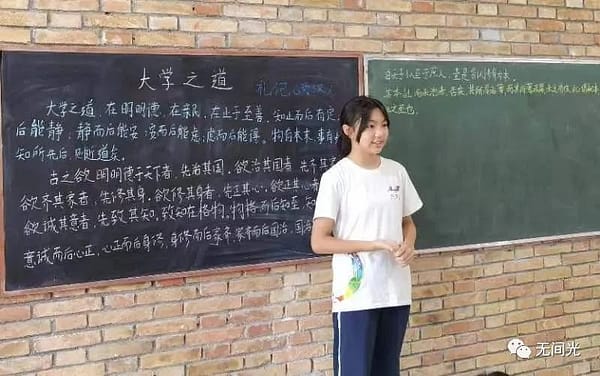 大学之道 礼记
大学之道，在明明德，在亲民，在止于至善，知止而后有定，
后能静；静而后能安；安而后能虑；虑而后能得。物有本末，事有
知所先后，则近道矣。
古之欲明明德于天下者，先治其国，欲治其国者，先齐其
欲齐其家者，先修其身，欲修其身者，先正其心，欲正其心
欲诚其意者，先致其知，致知在格物，物格而后知至，知
意诚而后心正，心正而后身修，身修而后家齐，家齐而后国治，国
自天子以至于庶人，壹是皆以修身为本。
其本乱而末治者，否矣，其所厚者薄，而其所薄者厚，未之有也，此谓知本，
知之至也。
无间光